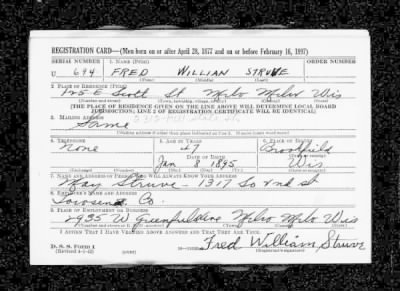 REGISTRATION CARD—(Men born on or after April 28, 1877 and on or before February 16, 1897)
SERIAL NUMBER 1. NAME (Print) ORDER NUMBER
U 694 FRED WILLIAN STRUVE
(First) (Middle) (Last)
2. PLACE OF RESIDENCE (Print)
E Scott St Milw Milw Wis
(Number and street) (Town, township, village, or city) (County) (State)
[THE PLACE OF RESIDENCE GIVEN ON THE LINE ABOVE WILL DETERMINE LOCAL BOARD
JURISDICTION; LINE 2 OF REGISTRATION CERTIFICATE WILL BE IDENTICAL]
3. MAILING ADDRESS
Same
[Mailing address if other than place indicated on line 2. If same insert word same]
4. TELEPHONE 5. AGE IN YEARS 6. PLACE OF BIRTH
None 47 Brookfield
DATE OF BIRTH (Town or county)
Jan 8 1895 Wis
(Exchange) (Number) (Mo.) (Day) (Yr.) (State or country)
7. NAME AND ADDRESS OF PERSON WHO WILL ALWAYS KNOW YOUR ADDRESS
May Struve - 1317 So 2nd St
8. EMPLOYER'S NAME AND ADDRESS
Co.
9. PLACE OF EMPLOYMENT OR BUSINESS
2935 W Greenfield Ave Milw Milw Wis
(Number and street or R. F. D. number) (Town) (County) (State)
I AFFIRM THAT I HAVE VERIFIED ABOVE ANSWERS AND THAT THEY ARE TRUE.
D. S. S. FORM 1
(Revised 4-1-42) (over) Fred William Struve